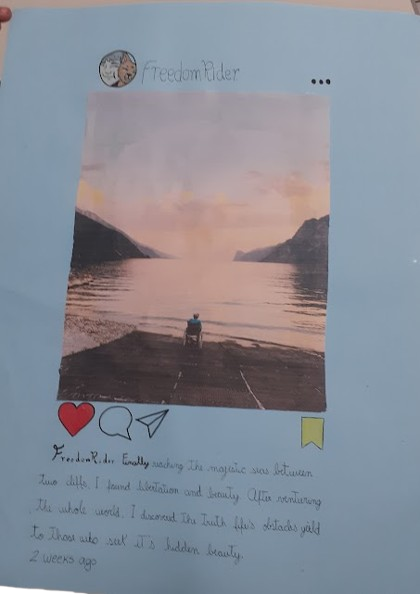 FreedomRider
FreedomRider Finally reaching the majestic seas between
two cliffs, I found libertation and beauty. After venturing
the whole world, I discoverd the truth life's obstacles yeild
to those who seek it's hidden beauty.
2 weeks ago